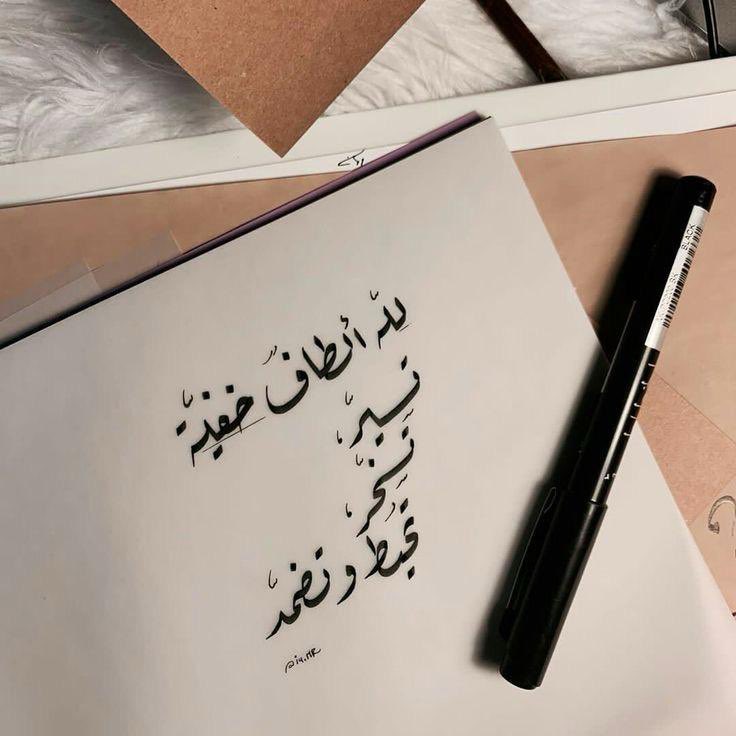 لله ألطافٌ خفيّة
تسيّر،
تسخّر،
تحيط و تضمّد
@iq.MR
BLACK